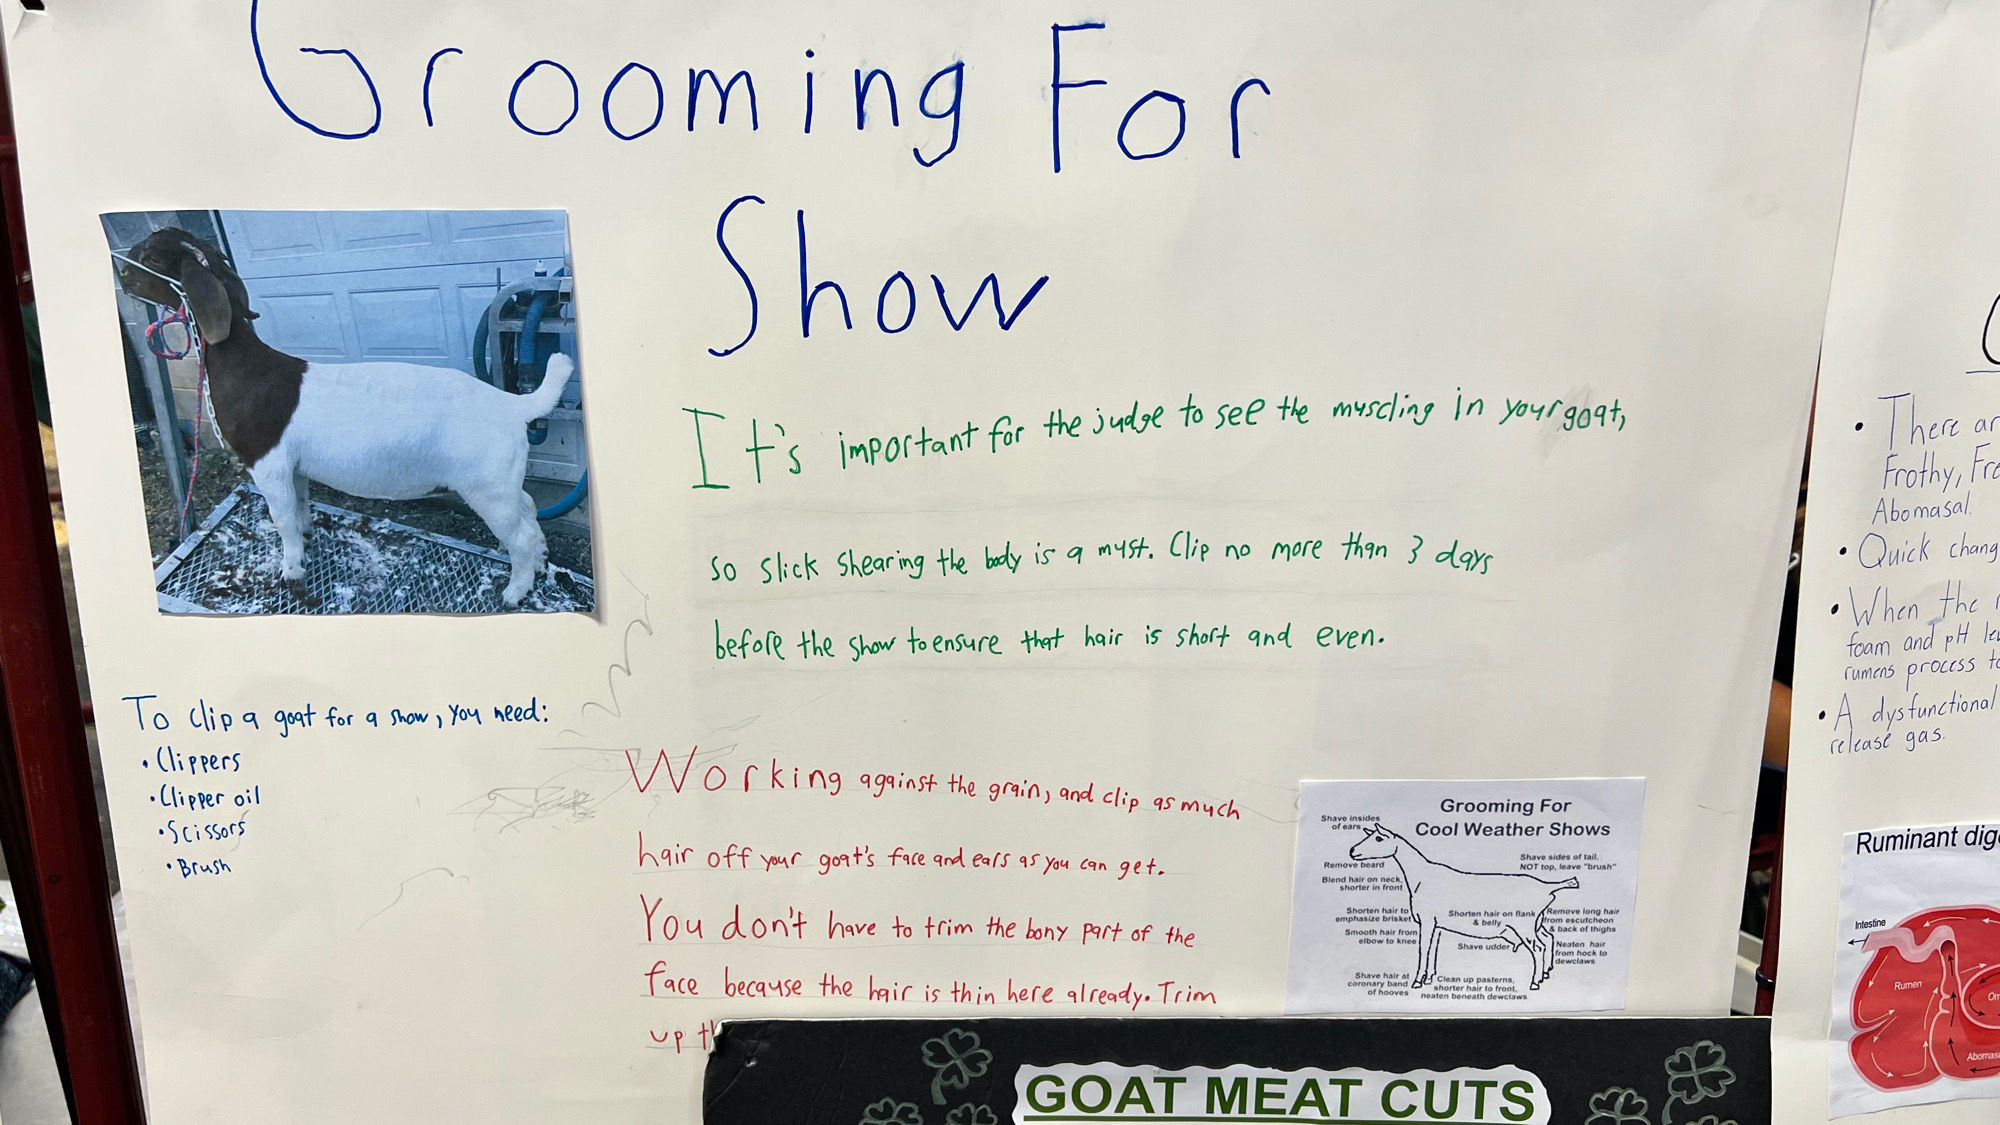 Grooming For
Show
It's important for the judge to see the muscling in your goat,
so slick shearing the body is a must. Clip no more than 3 days
before the show to ensure that hair is short and even.
To clip a goat for a show, you need:
• Clippers
• Clipper oil
• Scissors
• Brush
Working against the grain, and clip as much
hair off your goat's face and ears as you can get.
You don't have to trim the bony part of the
face because the hair is thin here already. Trim
up
Grooming For
Cool Weather Shows
Shave insides
of ears
Remove beard
Blend hair on neck,
shorter in front
Shorten hair to
emphasize brisket
Smooth hair from
elbow to knee
Shave hair at
coronary band
of hooves
Shave sides of tail,
NOT top, leave "brush"
Shorten hair on flank
& belly
Shave udder
Remove long hair
from escutcheon
& back of thighs
Neaten hair
from hock to
dewclaws
Clean up pasterns,
shorter hair to front,
neaten beneath dewclaws
GOAT MEAT CUTS
• There
Frothy,
Abomasal.
• Quick
• When the
foam and pH
rumens process
• A dysfunctional
release gas.
Ruminant
Intestine
Rumen